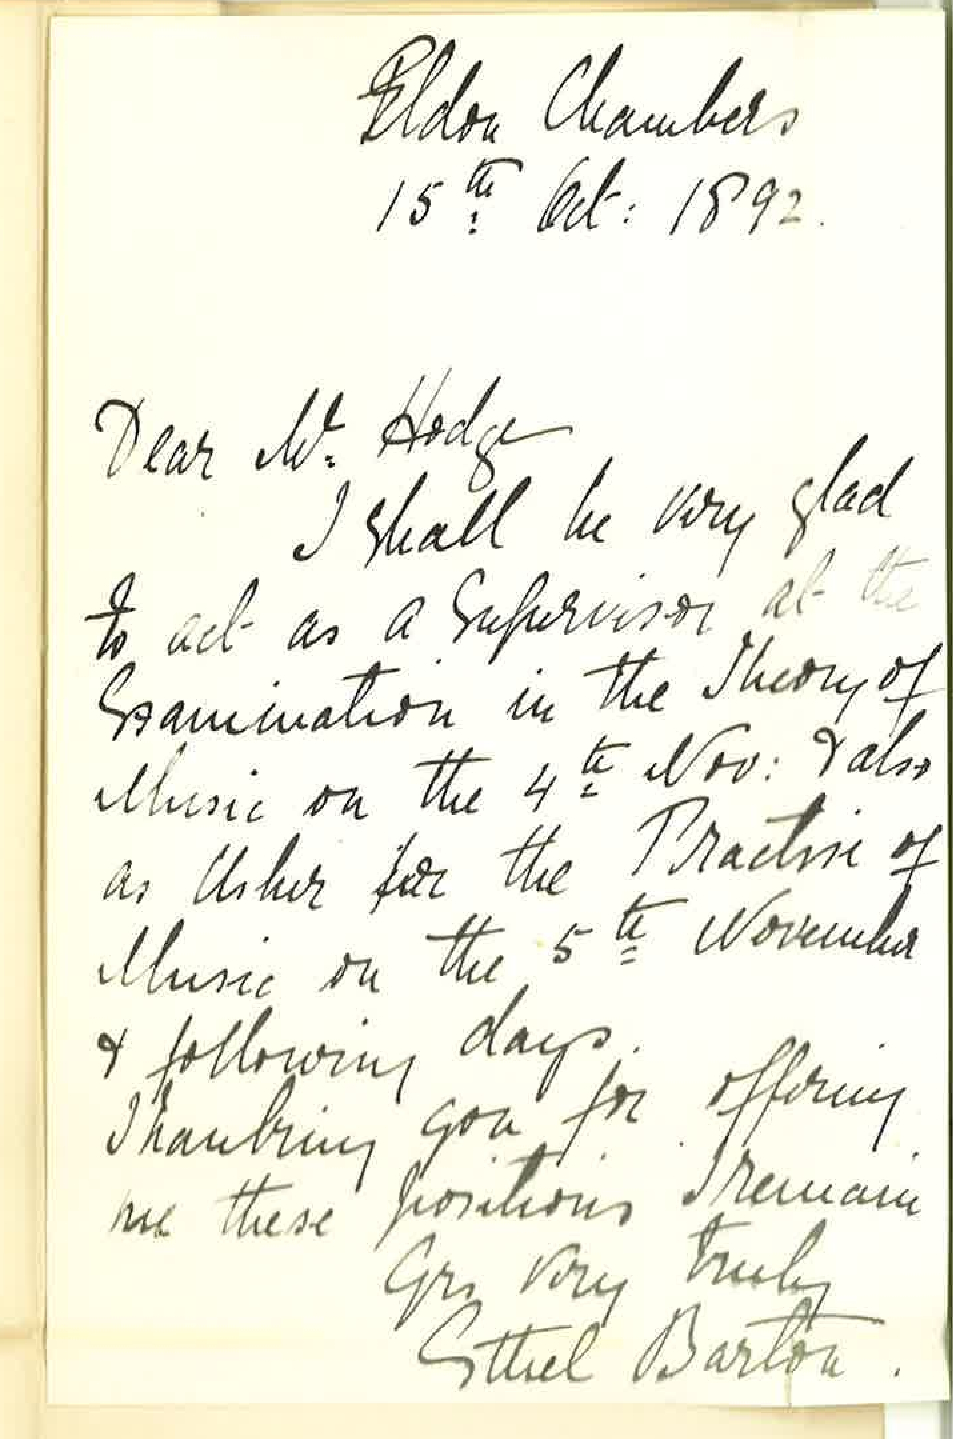 Eldon Chambers
15th Oct: 1892.
Dear Mr. Hodge
I shall be very glad
to act as a Supervisor at the
Examination in the Theory of
Music on the 4th Nov: & also
as Usher for the Practise of
Music on the 5th November
& following days.
Thanking you for offering
me these positions I remain
Yrs very truly
Ethel Barton.